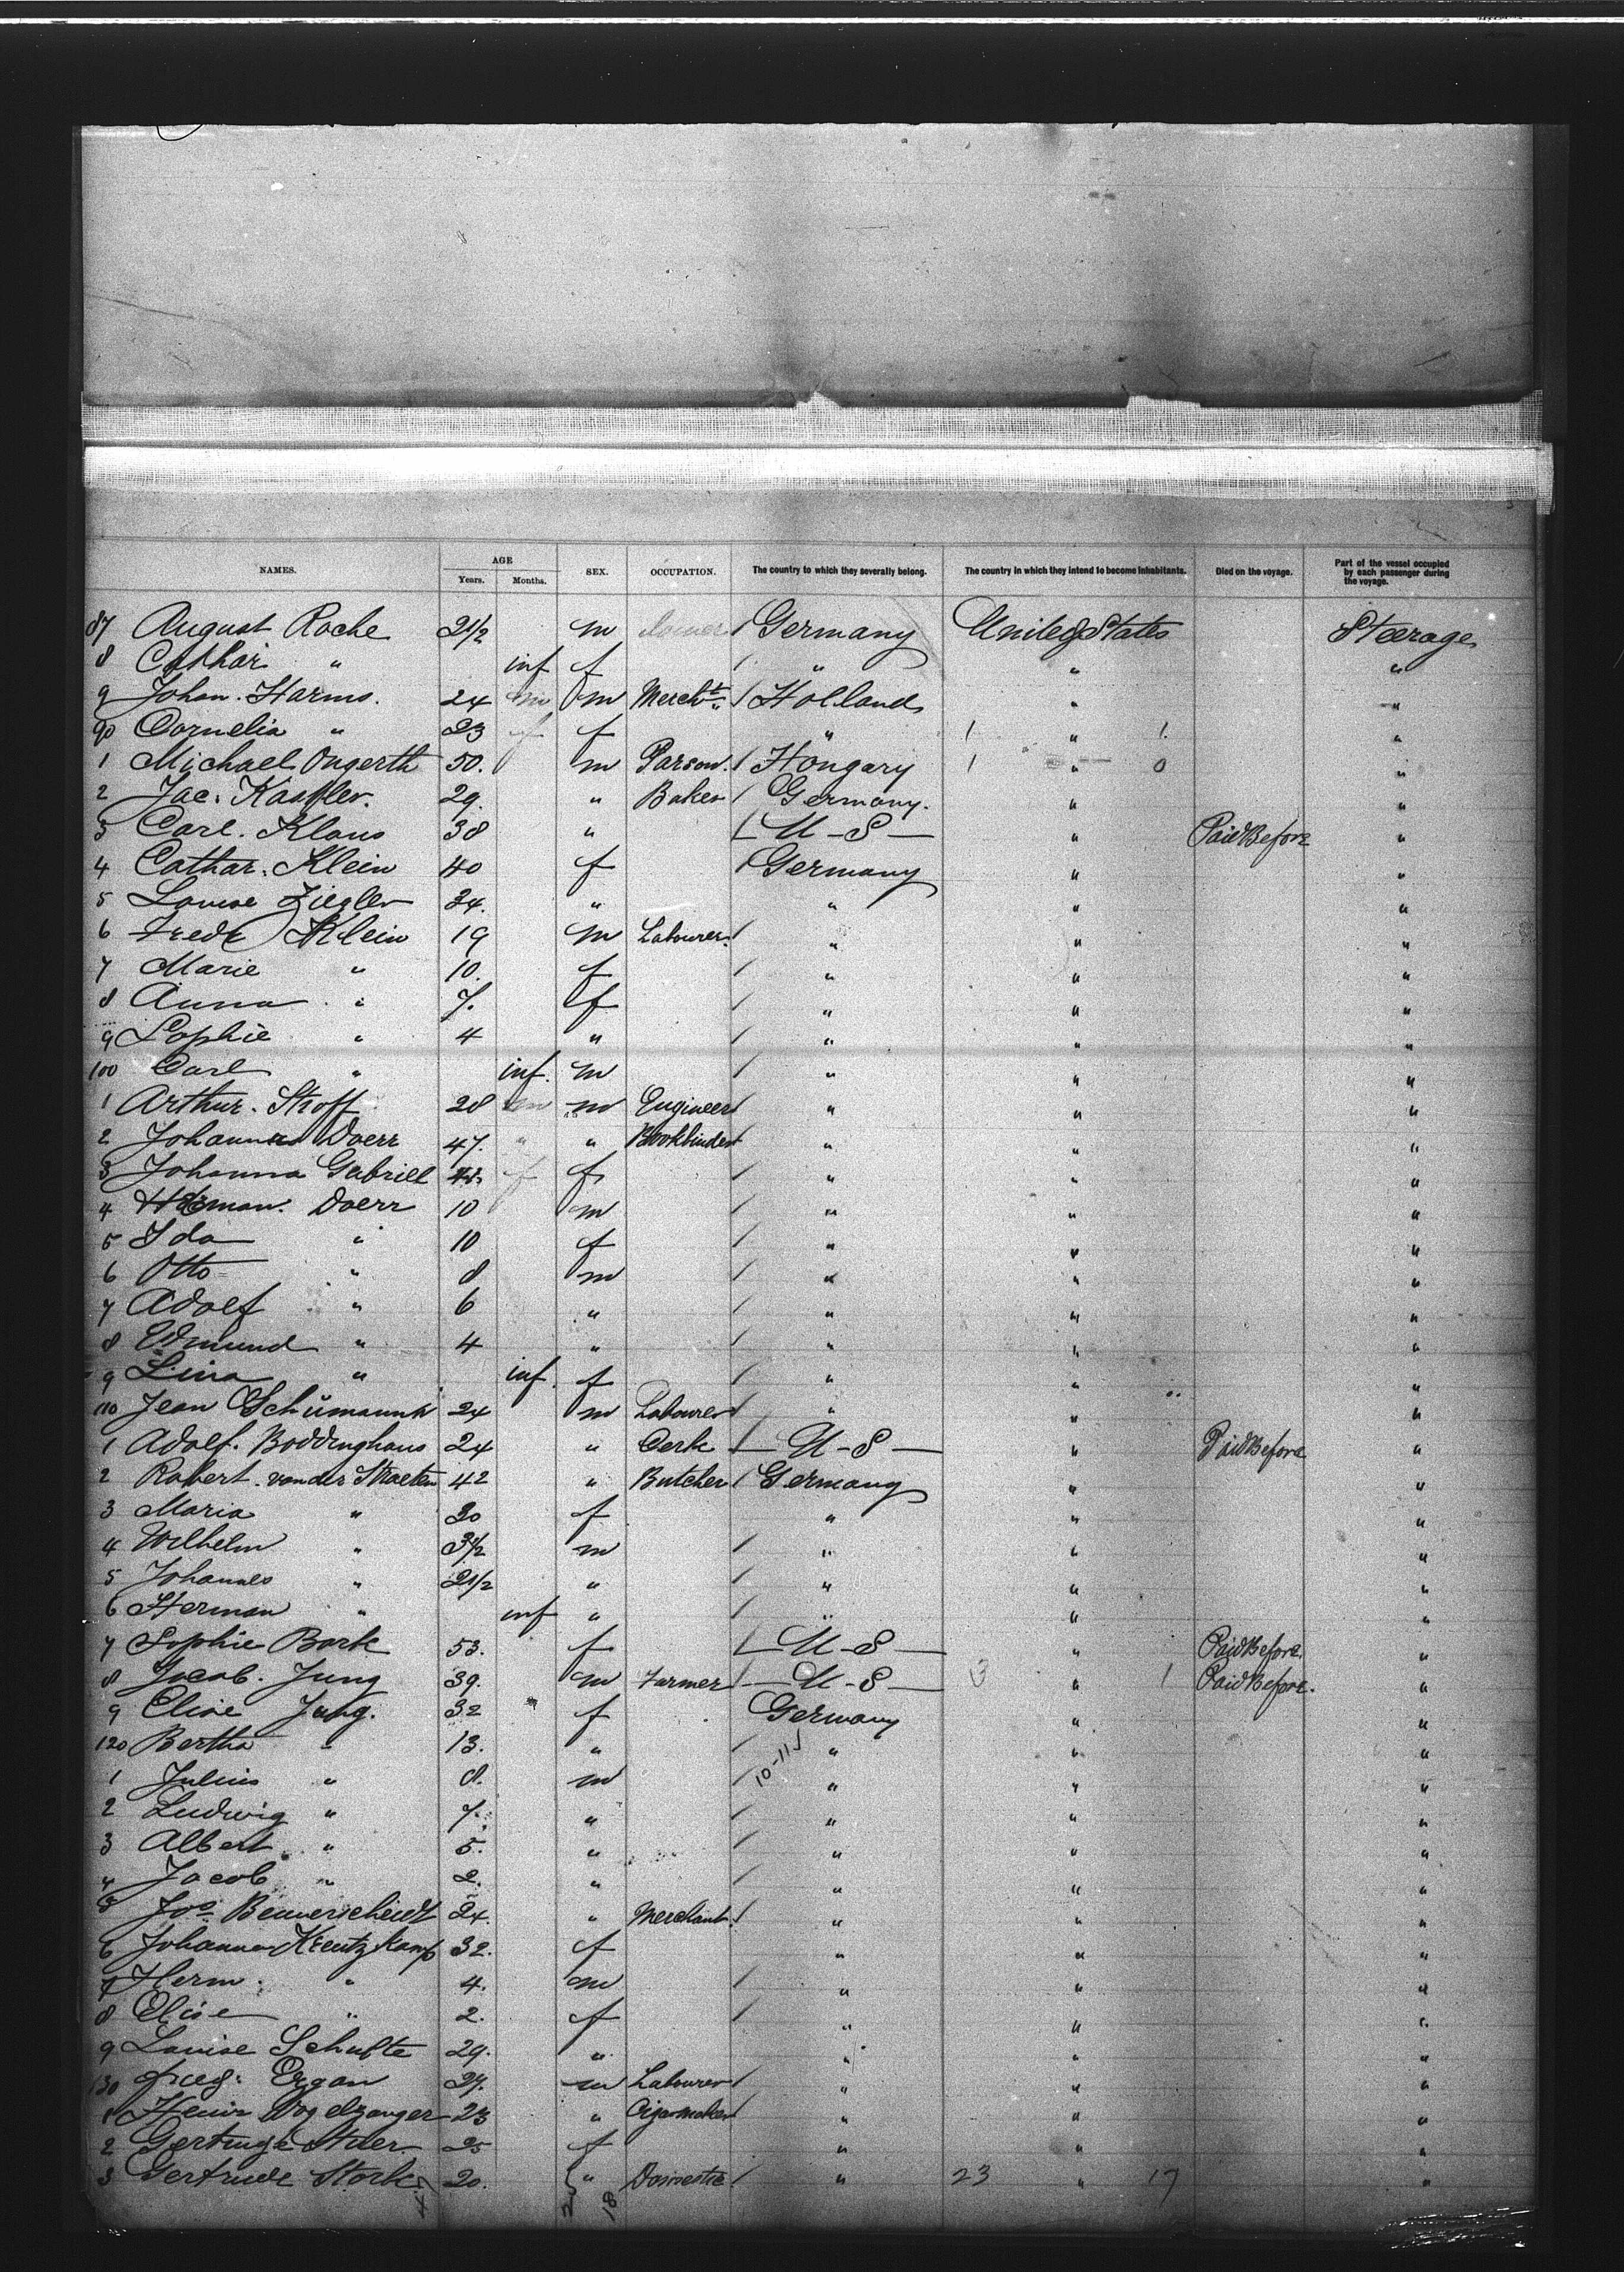 NAMES. AGE Years. Months. SEX. OCCUPATION. The country to which they severally belong. The country in which they intend to become inhabitants. Died on the voyage. Part of the vessel occupied by each passenger during the voyage.
87 August Roche 2 1/2 m Germany United States Steerage
8 Cathar " inf f " " "
9 Johan. Harms. 24 m Mercht. Holland " "
90 Cornelia " 23 f " 1 " 1. "
1 Michael Ongerth 50. m Parson. Hongary 1 " 0 "
2 Jac. Kastler. 29. " Baker Germany. " "
3 Carl. Klaus 38 " U-S " Paid Before "
4 Cathar. Klein 40 f Germany " "
5 Louise Ziegler 24. " " " "
6 Fredr Klein 19 m Labourer. " " "
7 Marie " 10. f " " "
8 Anna " 7. f " " "
9 Sophie " 4 " " " "
100 Carl " inf. m " " "
1 Arthur. Stroff 28 m Engineer " " "
2 Johannes Doerr 47. " Bookbinder " " "
3 Johanna Gabriel f " " "
4 Herman. Doerr 10 m " " "
5 Ida " 10 f " " "
6 Otto " 8 m " " "
7 Adolf " 6 " " " "
8 Edmund " 4 " " " "
9 Lina " inf. f " " "
110 Jean Schümann 24 m Labourer " " "
1 Adolf. Boddinghaus 24 " Clerk U-S " Paid Before "
2 Robert. von der Straeten 42 " Butcher Germany " "
3 Maria " 20 f " " "
4 Wilhelm " 3 1/2 m " " "
5 Johannes " 2 1/2 " " " "
6 Herman " inf " " " "
7 Sophie Bork 53. f U-S " Paid Before. "
8 Jacob. Jung 39. m Farmer U-S 3 " 1 Paid Before. "
9 Elise Jung. 32 f Germany " "
120 Bertha " 13. " " " "
1 Julius " 8. m 10-11 " " "
2 Ludwig " 7. " " " "
3 Albert " 5. " " " "
4 Jacob " 2. " " " "
5 Jos Bennerscheidt 24. " Merchant. " " "
6 Johanna Kreutzkamp 32. f " " "
7 Herm. " 4. m " " "
8 Elise " 2. f " " "
9 Louise Schulte 29. " " " "
130 Organ m Labourer " " "
1 Heinr Vogelzanger 23 " Cigarmaker " " "
2 25 f " " "
3 Gertrude Stork 20. " Domestic " 23 " 17 "
18